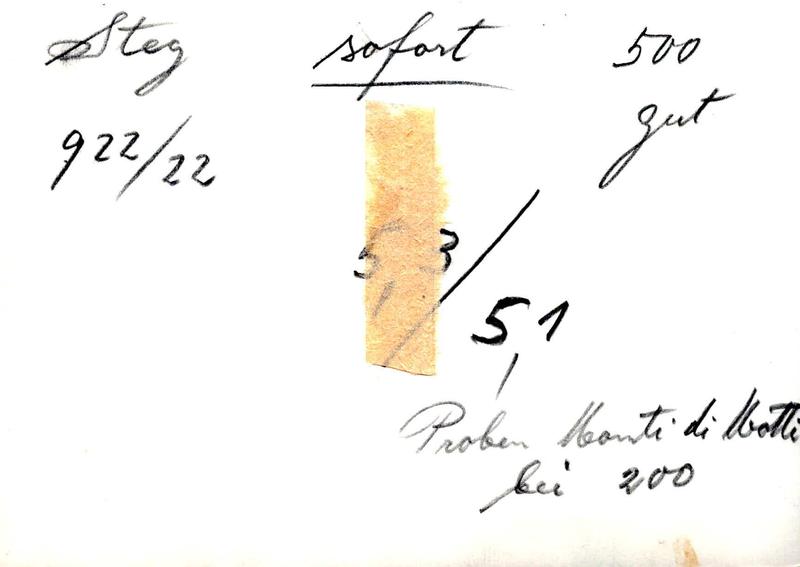 Steg sofort 500
gut
922/22
5,3/5,1
Proben Monti di Motti
bei 200